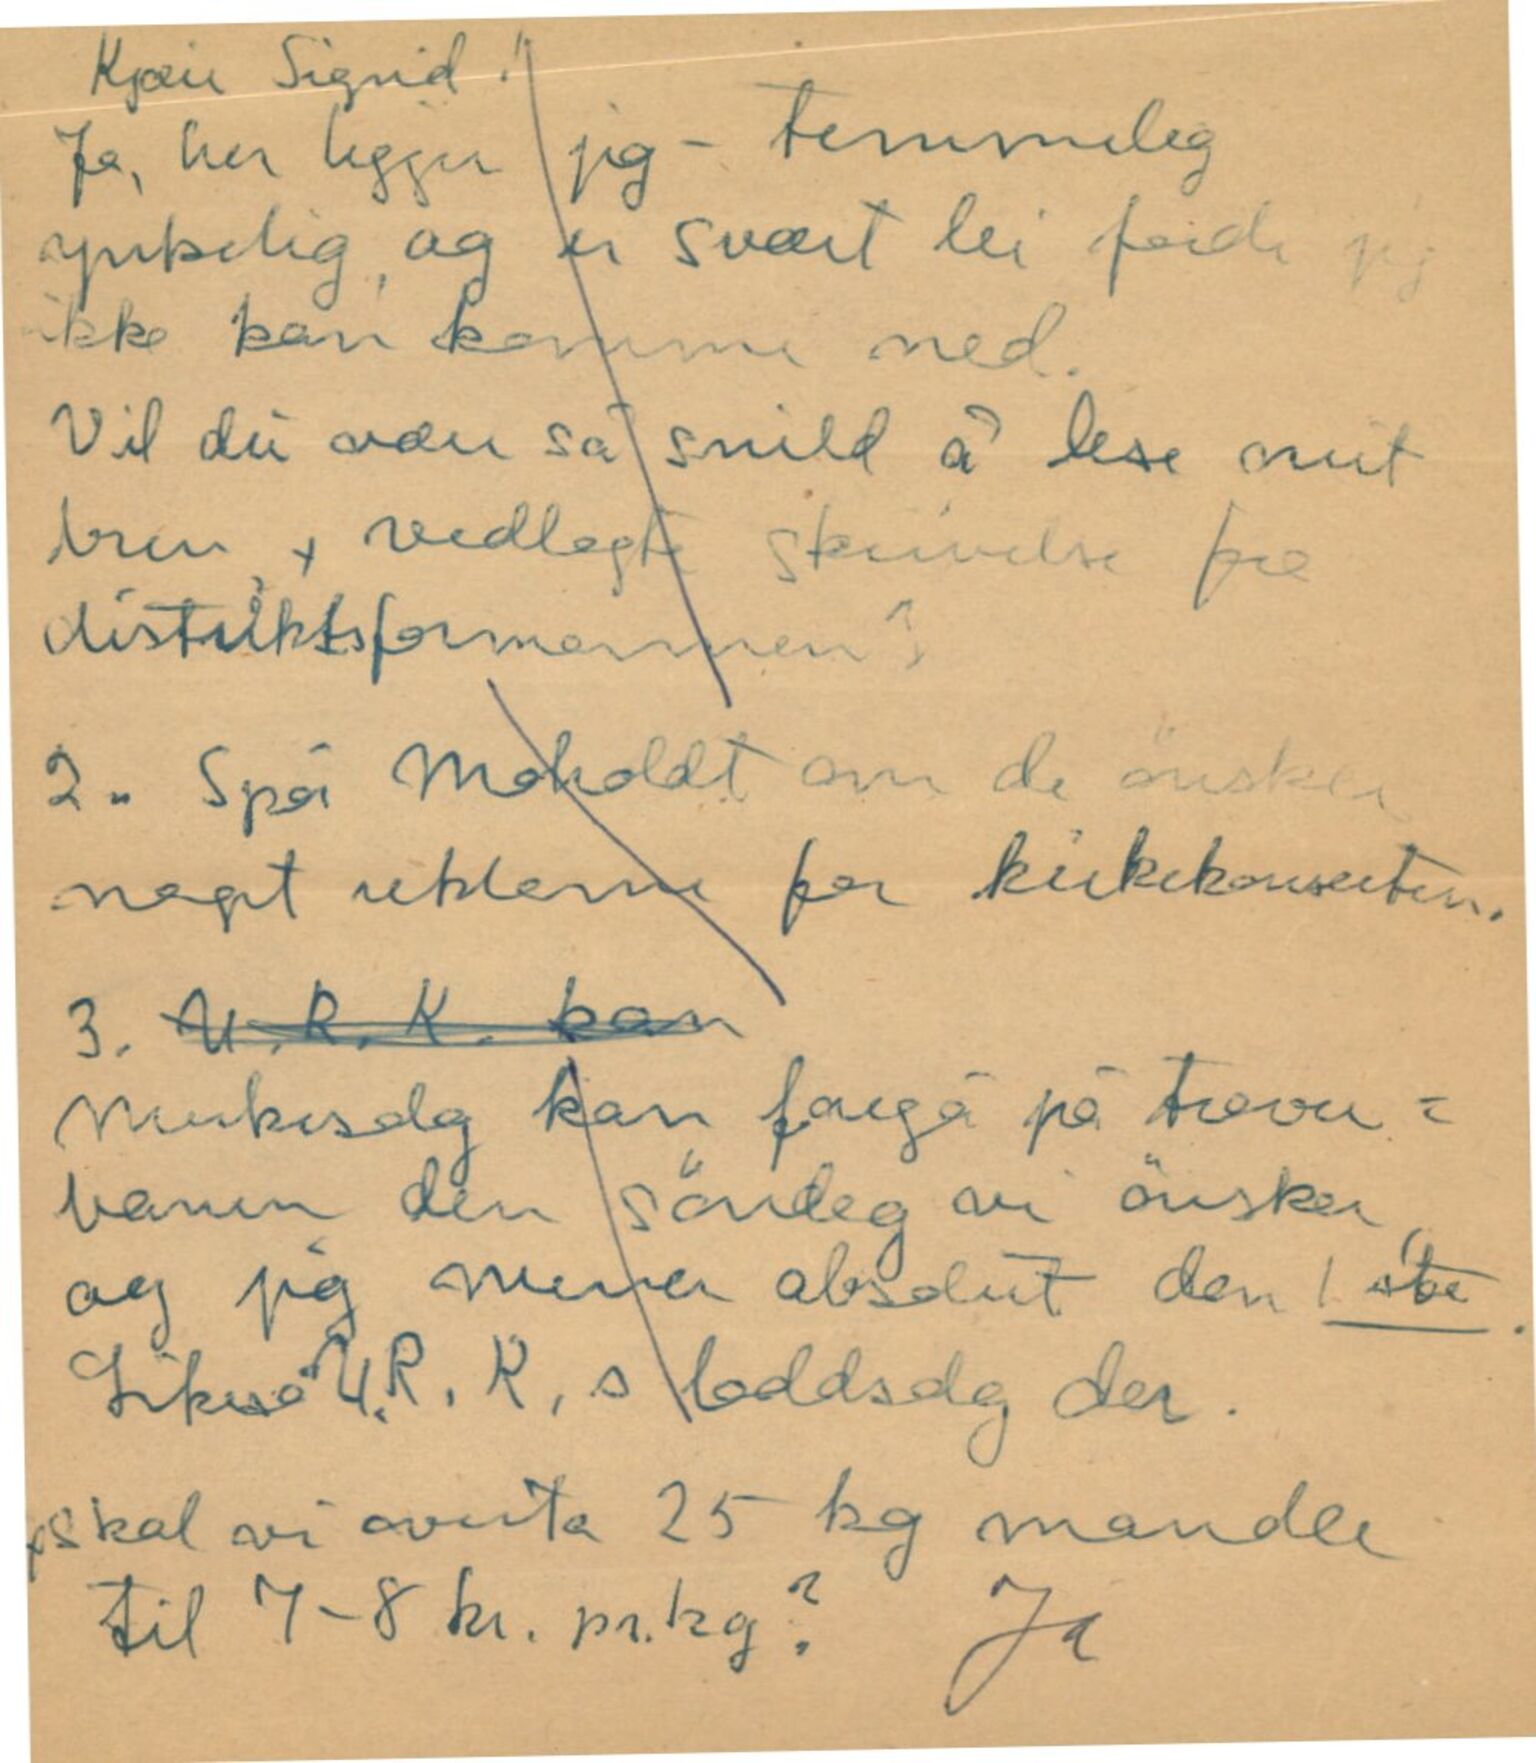 Kjære Sigrid!
Ja, her ligger jeg - temmelig
ynkelig, og er svært lei fordi jeg
ikke kan komme ned.
Vil du være så snild å lese mit
brev, + vedlagte skrivelse fra
distriktsformannen?
2. Spør Moholdt om de ønsker
noget reklame for kirkekonserten.
3. U.R.K. kan
Merkesalg kan foregå på traver=
banen den söndag vi önsker,
og jeg mener absolut den 1ste.
Likeså U.R.K,s loddsalg der.
x skal vi overta 25 kg mandler
til 7-8 kr. pr. kg? Ja